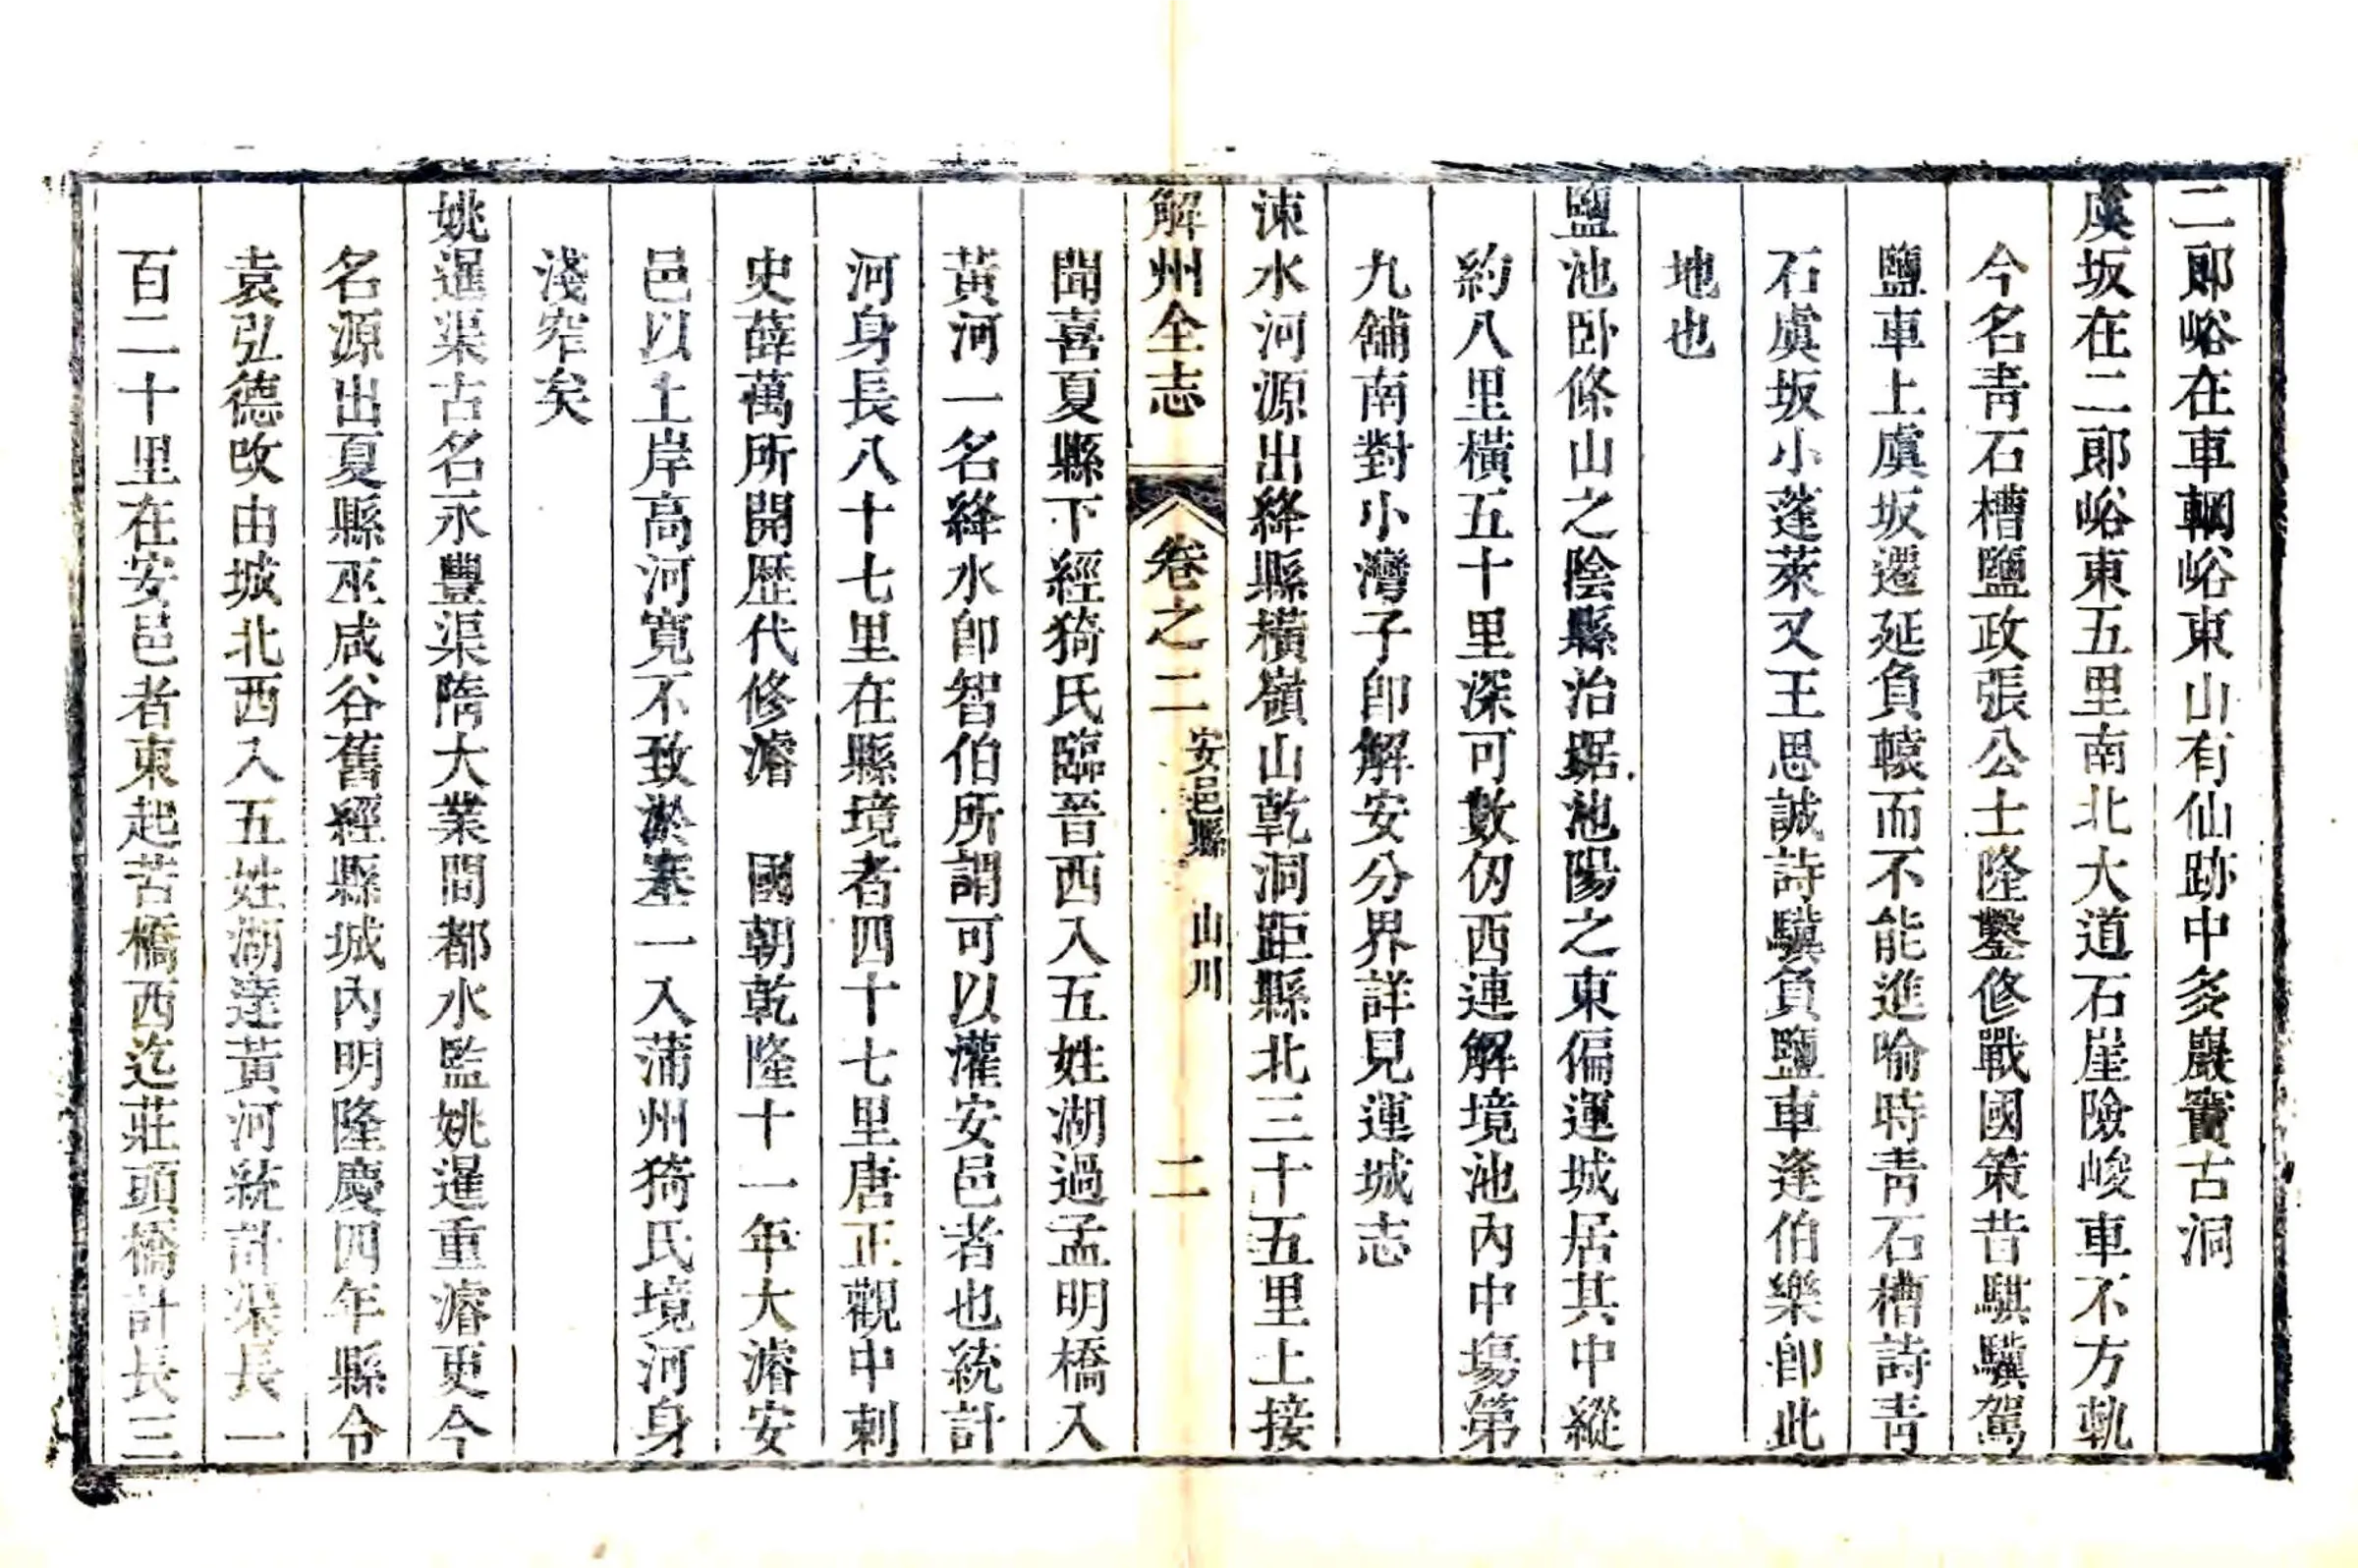 二郎峪在車輞峪東山有仙跡中多巖竇古洞
虞坂在二郎峪東五里南北大道石崖險峻車不方軌
今名青石槽鹽政張公士隆鑿修戰國策昔騏驥駕
鹽車上虞坂遷延負轅而不能進喻時青石槽詩青
石虞坂小蓬萊又王思誠詩驥負鹽車逢伯樂卽此
地也
鹽池卧條山之陰縣治踞池陽之東偏運城居其中縱
約八里橫五十里深可數仞西連解境池內中場第
九舖南對小灣子卽解安分界詳見運城志
涑水河源出絳縣橫嶺山乾洞距縣北三十五里上接
解州全志 卷之二 安邑縣 山川 二
聞喜夏縣下經猗氏臨晉西入五姓湖過孟明橋入
黃河一名絳水卽智伯所謂可以灌安邑者也統計
河身長八十七里在縣境者四十七里唐正觀中刺
史薛萬所開歷代修濬 國朝乾隆十一年大濬安
邑以上岸高河寬不致淤塞一入蒲州猗氏境河身
淺窄矣
姚暹渠古名永豐渠隋大業間都水監姚暹重濬更今
名源出夏縣巫咸谷舊經縣城內明隆慶四年縣令
袁弘德改由城北西入五姓湖達黃河統計渠長一
百二十里在安邑者東起苦橋西迄莊頭橋計長三